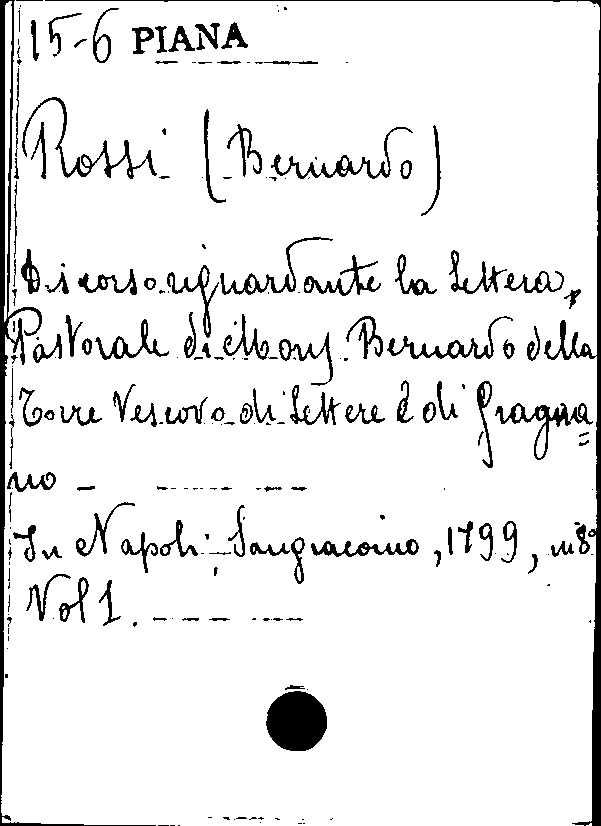 15-6 PIANA
Rossi (Bernardo)
Discorso riguardante la Lettera
Pastorale di Mons. Bernardo della
Torre Vescovo di Lettere e di Gragna=
no –
In Napoli, Sangiacomo, 1799, in 8°
Vol 1.